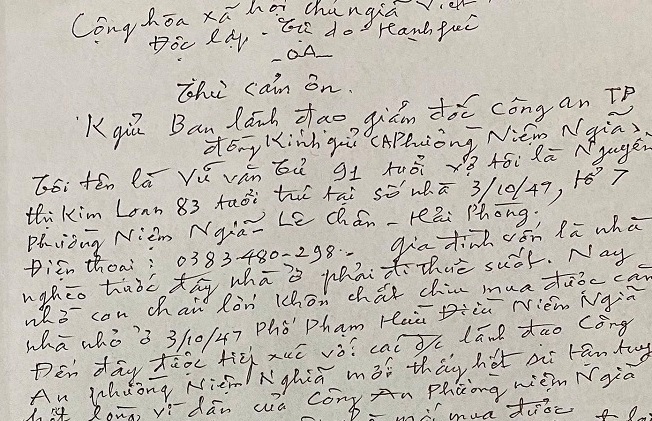 Cộng hòa xã hội chủ nghĩa Việt
Độc lập - Tự do Hạnh phúc
-OA-
Thư cảm ơn.
K gửi Ban lãnh đạo giám đốc công an TP
đồng Kính gửi CA Phường Niệm Nghĩa
Tôi tên là Vũ văn Tử 91 tuổi vợ tôi là Nguyễn
thị Kim Loan 83 tuổi trú tại số nhà 3/10/47, tổ 7
Phường Niệm Nghĩa - Lê chân - Hải Phòng.
Điện thoại: 0383-480-298 - gia đình vốn là nhà
nghèo trước đây nhà ở phải đi thuê suốt. Nay
nhờ con cháu lớn khôn chắt chiu mua được căn
nhà nhỏ ở 3/10/47 Phố Phạm Hữu Điều Niệm Nghĩa
Đến đây được tiếp xúc với các đ/c lãnh đạo Công
An phường Niệm Nghĩa mới thấy hết sự tận tụy
hết lòng vì dân của Công An Phường niệm Nghĩa
mới mua được